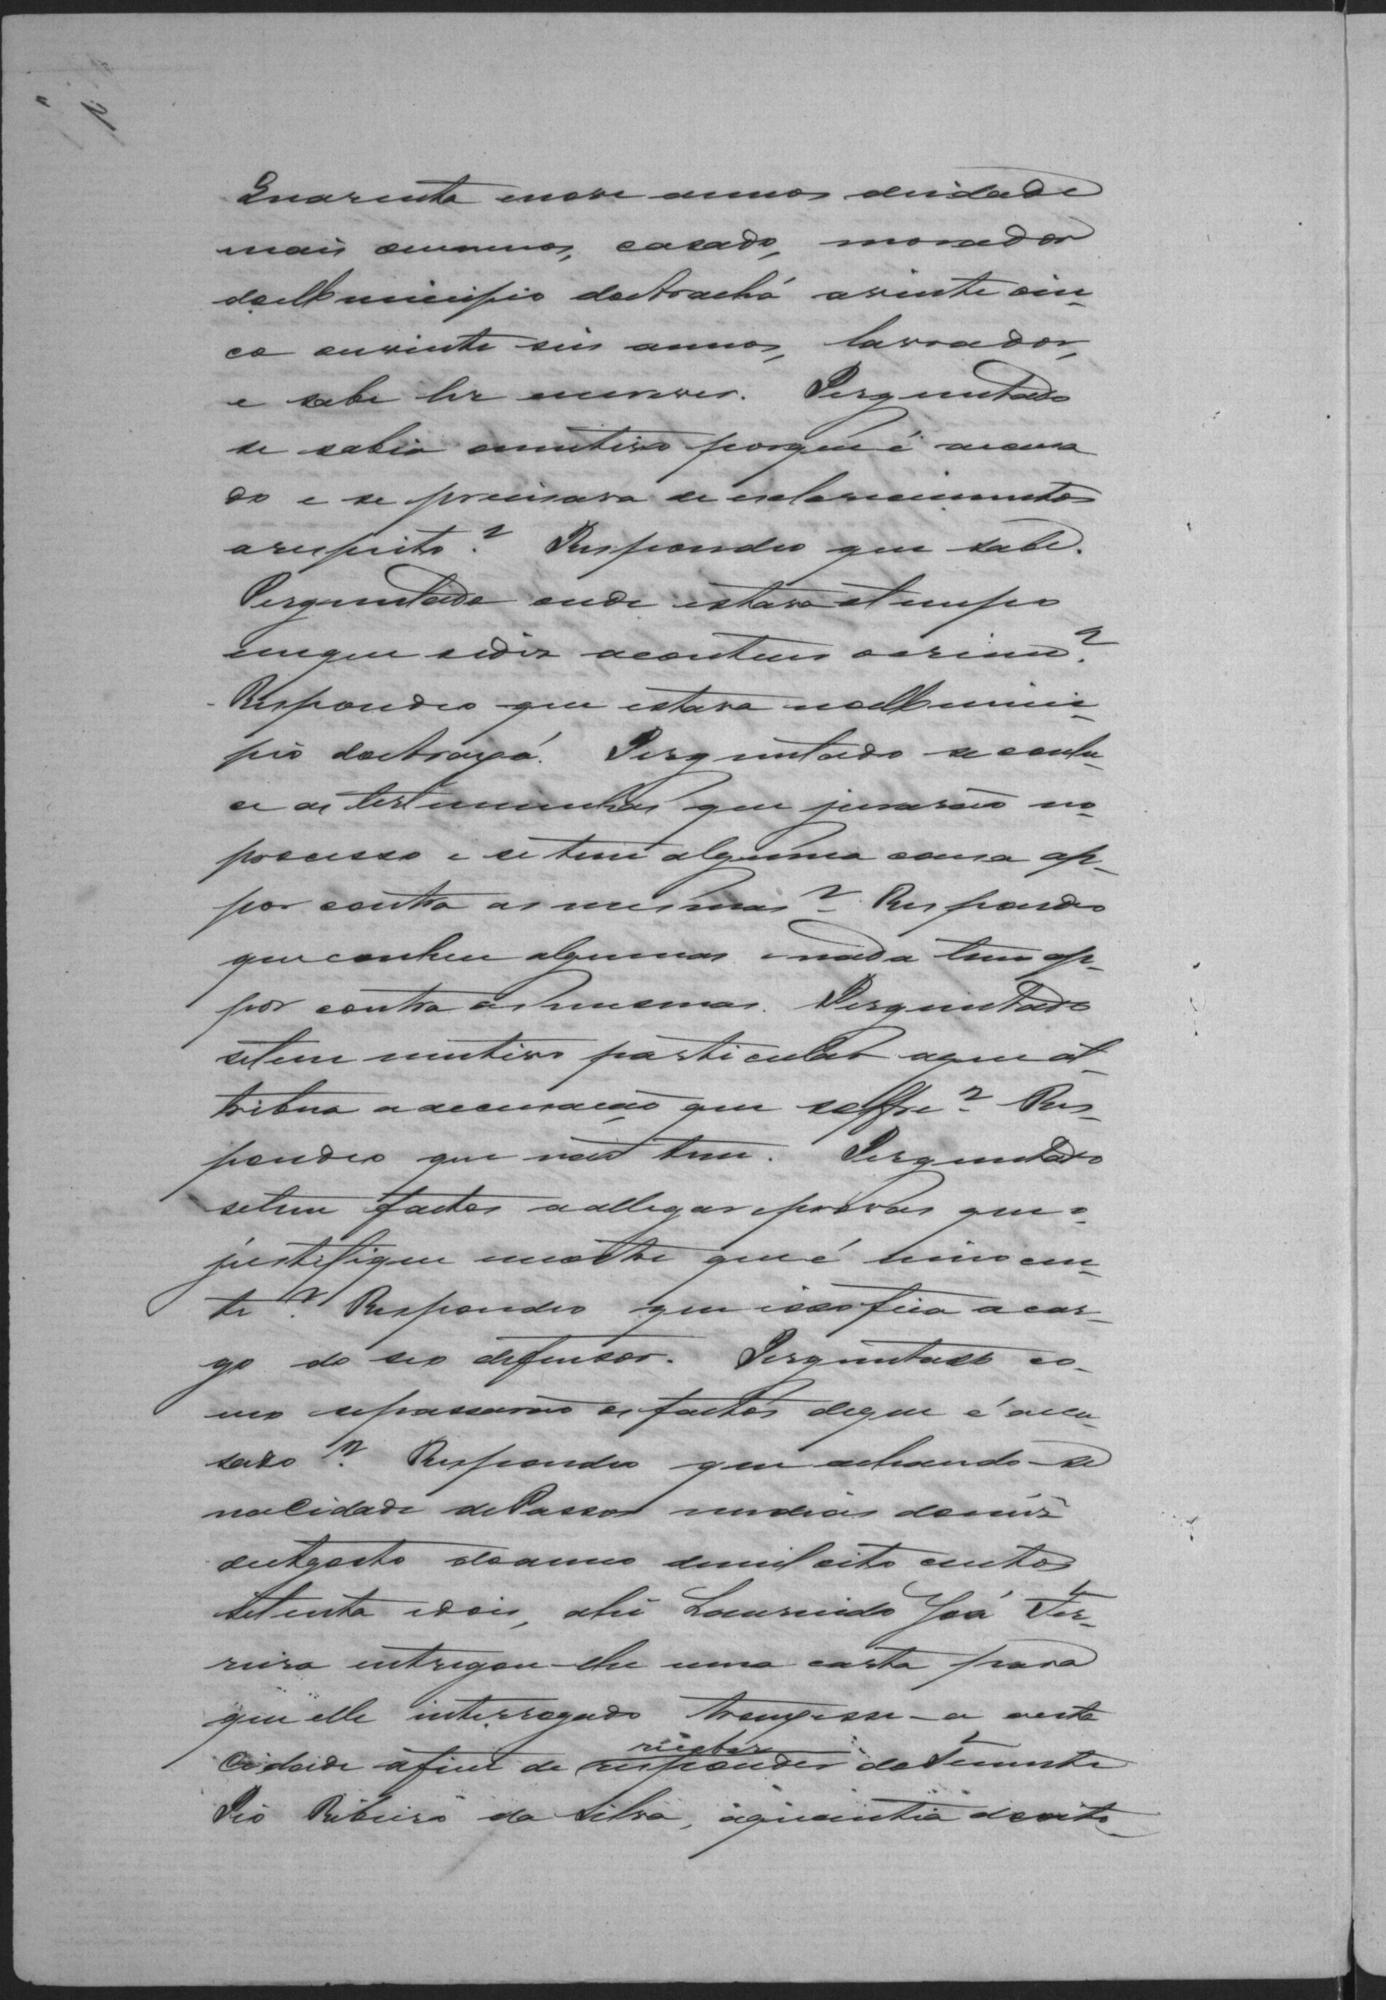 Quarenta enove annos deidade
mais oumenos, casado, morador
do Municipio do Arachá avinte cin-
co ouvinte seis annos, lavrador,
e sabe ler eescrever. Perguntado
se sabia omutivo porque é accusa
do e se precisava de esclarecimentos
arespeito? Respondeo que sabe.
Perguntado onde estava atempo
emque sediz aconteceu ocrime?
Respondeo que estava no Munici-
pio do Araxá. Perguntado se conhe-
ce as testemunhas que jurarão no
processo e setem alguma cousa op-
por contra as mesmas? Respondeo
que conhece algumas enada tem op-
por contra as mesmas. Perguntado
setem mutivo particular aque at-
tribua a accusação que soffre? Res-
pondeo que não tem. Perguntado
setem factos a allegar eprovas que o
justifique emostre que é innocen-
te? Respondeo que isso fica a car-
go do seo defensor. Perguntado co-
mo sepassarão os factos deque é accu-
sado? Respondeo que achando-se
na Cidade de Passos nodia
de Agosto do anno demil oito centos
setenta edois, ahi Lourindo José Fer-
reira entregou-lhe uma carta para
que elle interrogado trouxesse-a aesta
Cidade afim de responder receber do Tenente
Pio Ribeiro da Silva, aquantia de oito